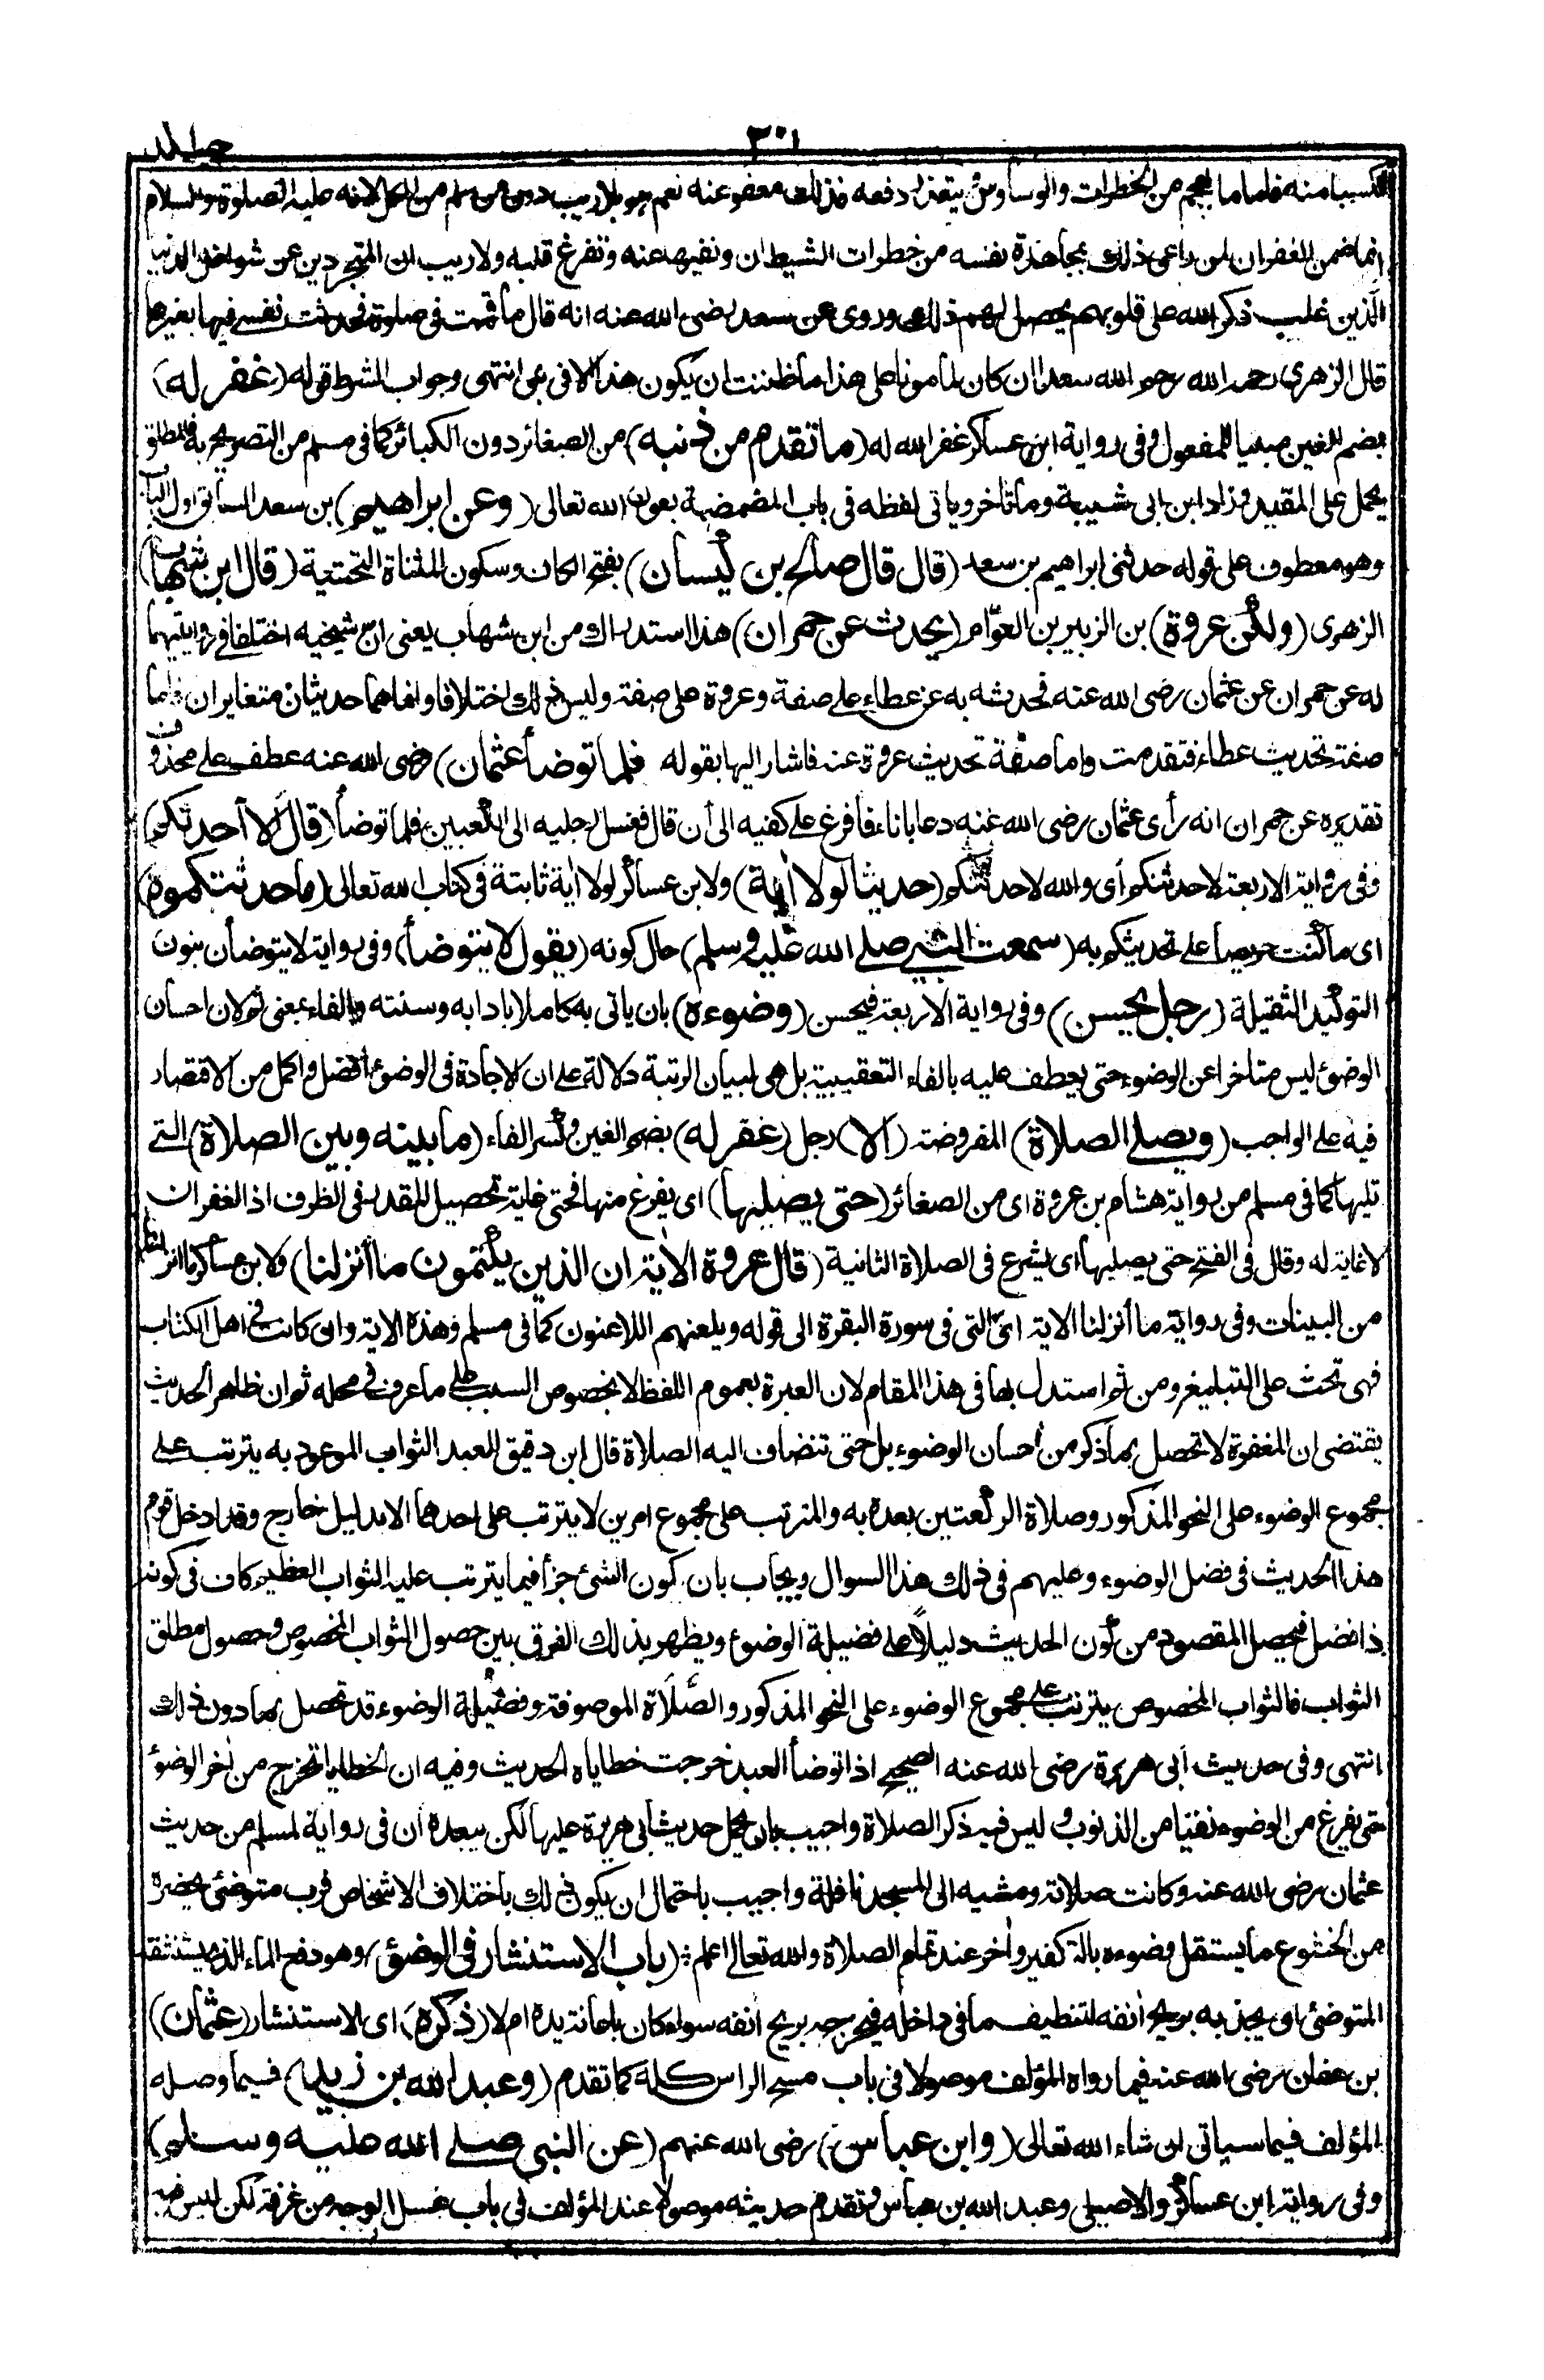 ٣٠١
جلد
تكسبا منه فاما ما يهجم من الخطرات والوساوس يتعذر دفعه فذلك معفو عنه نعم هو بلا ريب دون من سلم من الكل لانه عليه الصلوة والسلام
انما ضمن الغفران لمن راعى ذلك بمجاهدة نفسه من خطرات الشيطان ونفيها عنه وتفرغ قلبه ولا ريب ان المتجردين عن شواغل الدنيا
الذين غلب ذكر الله على قلوبهم يحصل لهم ذلك وروى عن سعد رضى الله عنه انه قال ما قمت فى صلوة فحدثت نفسى فيها بغيرها
قال الزهرى رحمه الله رحم الله سعدا ان كان لمامونا على هذا ما ظننت ان يكون هذا الا فى نبى انتهى وجواب الشرط قوله (غفر له)
بضم الغين مبنيا للمفعول وفى رواية ابن عساكر غفر الله له (ما تقدم من ذنبه) من الصغائر دون الكبائر كما فى مسلم من التصريح به فالمطلق
يحمل على المقيد وزاد ابن ابى شيبة وما تاخر وياتى لفظه فى باب المضمضة بعون الله تعالى (وعن ابراهيم) بن سعد السابق اول الباب
وهو معطوف على قوله حدثنى ابراهيم بن سعد (قال قال صالح بن كيسان) بفتح الكاف وسكون المثناة التحتية (قال ابن شهاب)
الزهرى (ولكن عروة) بن الزبير بن العوّام (يحدث عن حمران) هذا استدراك من ابن شهاب يعنى انّ شيخيه اختلفا فى روايتيهما
له عن حمران عن عثمان رضى الله عنه فحدثه به عن عطاء على صفة وعروة على صفة وليس ذلك اختلافا وانما هما حديثان متغايران فاما
صفة تحديث عطاء فتقدمت واما صفة تحديث عروة عنه فاشار اليها بقوله فلما توضأ عثمان) رضى الله عنه عطف على محذوف
تقديره عن حمران انه رأى عثمان رضى الله عنه دعا باناء فأفرغ على كفيه الى أن قال فغسل رجليه الى الكعبين فلما توضأ (قال ألا أحدثكم)
وفى رواية الاربعة لاحدثنكم أى والله لاحدثنكم (حديثا لولا اٰية) ولابن عساكر لولا اٰية ثابتة فى كتاب الله تعالى (ما حدثتكموه)
اى ما كنت حريصا على تحديثكم به (سمعت النبى صلى الله عليه وسلم) حال كونه (يقول لا يتوضأ) وفى رواية لا يتوضأن بنون
التوكيد الثقيلة (رجل يحسن) وفى رواية الاربعة فيحسن (وضوءه) بان ياتى به كاملا بادابه وسننه والفاء بمعنى ثم لان احسان
الوضوء ليس متاخرا عن الوضوء حتى يعطف عليه بالفاء التعقيبية بل هى لبيان الرتبة دلالة على ان الاجادة فى الوضوء افضل واكمل من الاقتصار
فيه على الواجب (ويصلى الصلاة) المفروضة (الا) رجل (غفر له) بضم الغين وكسر الفاء (ما بينه وبين الصلاة) التى
تليها كما فى مسلم من رواية هشام بن عروة اى من الصغائر (حتى يصليها) اى يفرغ منها فحتى غاية تحصيل المقدر فى الظرف اذ الغفران
لا غاية له وقال فى الفتح حتى يصليها اى يشرع فى الصلاة الثانية (قال عروة الاٰية ان الذين يكتمون ما أنزلنا) ولابن عساكر ما انزل الله
من البينات وفى رواية ما أنزلنا الاية اى التى فى سورة البقرة الى قوله ويلعنهم اللاعنون كما فى مسلم وهذه الاية وان كانت فى اهل الكتاب
فهى تحث على التبليغ ومن ثم استدل بها فى هذا المقام لان العبرة بعموم اللفظ لا بخصوص السبب على ما عرف فى محله ثم ان ظاهر الحديث
يقتضى ان المغفرة لا تحصل بما ذكر من احسان الوضوء بل حتى تنضاف اليه الصلاة قال ابن دقيق العبد الثواب الموعود به يترتب على
مجموع الوضوء على النحو المذكور وصلاة الركعتين بعده به والمترتب على مجموع امرين لا يترتب على احدهما الا بدليل خارج وقد ادخل قوم
هذا الحديث فى فضل الوضوء وعليهم فى ذلك هذا السوال ويجاب بان كون الشئ جزأ فيما يترتب عليه الثواب العظيم كاف فى كونه
ذا فضل فيحصل المقصود من كون الحديث دليلاً على فضيلة الوضوء ويظهر بذلك الفرق بين حصول الثواب المخصوص وحصول مطلق
الثواب فالثواب المخصوص يترتب على مجموع الوضوء على النحو المذكور والصَّلَاة الموصوفة وفضيلة الوضوء قد تحصل بما دون ذلك
انتهى وفى حديث أبى هريرة رضى الله عنه الصحيح اذا توضأ العبد خرجت خطاياه الحديث وفيه ان الخطايا تخرج من اٰخر الوضوء
حتى يفرغ من الوضوء نقيا من الذنوب وليس فيه ذكر الصلاة واجيب بان يحمل حديث أبى هريرة عليها لكن يبعده ان فى رواية لمسلم من حديث
عثمان رضى الله عنه وكانت صلاته ومشيه الى المسجد نافلة واجيب باحتمال ان يكون ذلك باختلاف الاشخاص فرب متوضئ يحضره
من الخشوع ما يستقل وضوءه بالتكفير واٰخر عند تمام الصلاة والله تعالى اعلم : (باب الاستنثار فى الوضوء) وهو دفع الماء الذى يستنشقه
المتوضئ اى يجذبه بريح أنفه لتنظيف ما فى داخله فيخرجه بريح أنفه سواء كان باعانة يده ام لا (ذكره) اى الاستنثار (عثمان)
بن عفان رضى الله عنه فيما رواه المؤلف موصولا فى باب مسح الراس كله كما تقدم (وعبد الله بن زيد) فيما وصله
المؤلف فيما سياتى ان شاء الله تعالى (وابن عباس) رضى الله عنهم (عن النبى صلى الله عليه وسلم)
وفى رواية ابن عساكر والاصيلى وعبد الله بن عباس وتقدم حديثه موصولا عند المؤلف فى باب غسل الوجه من غرفة لكن ليس فيه